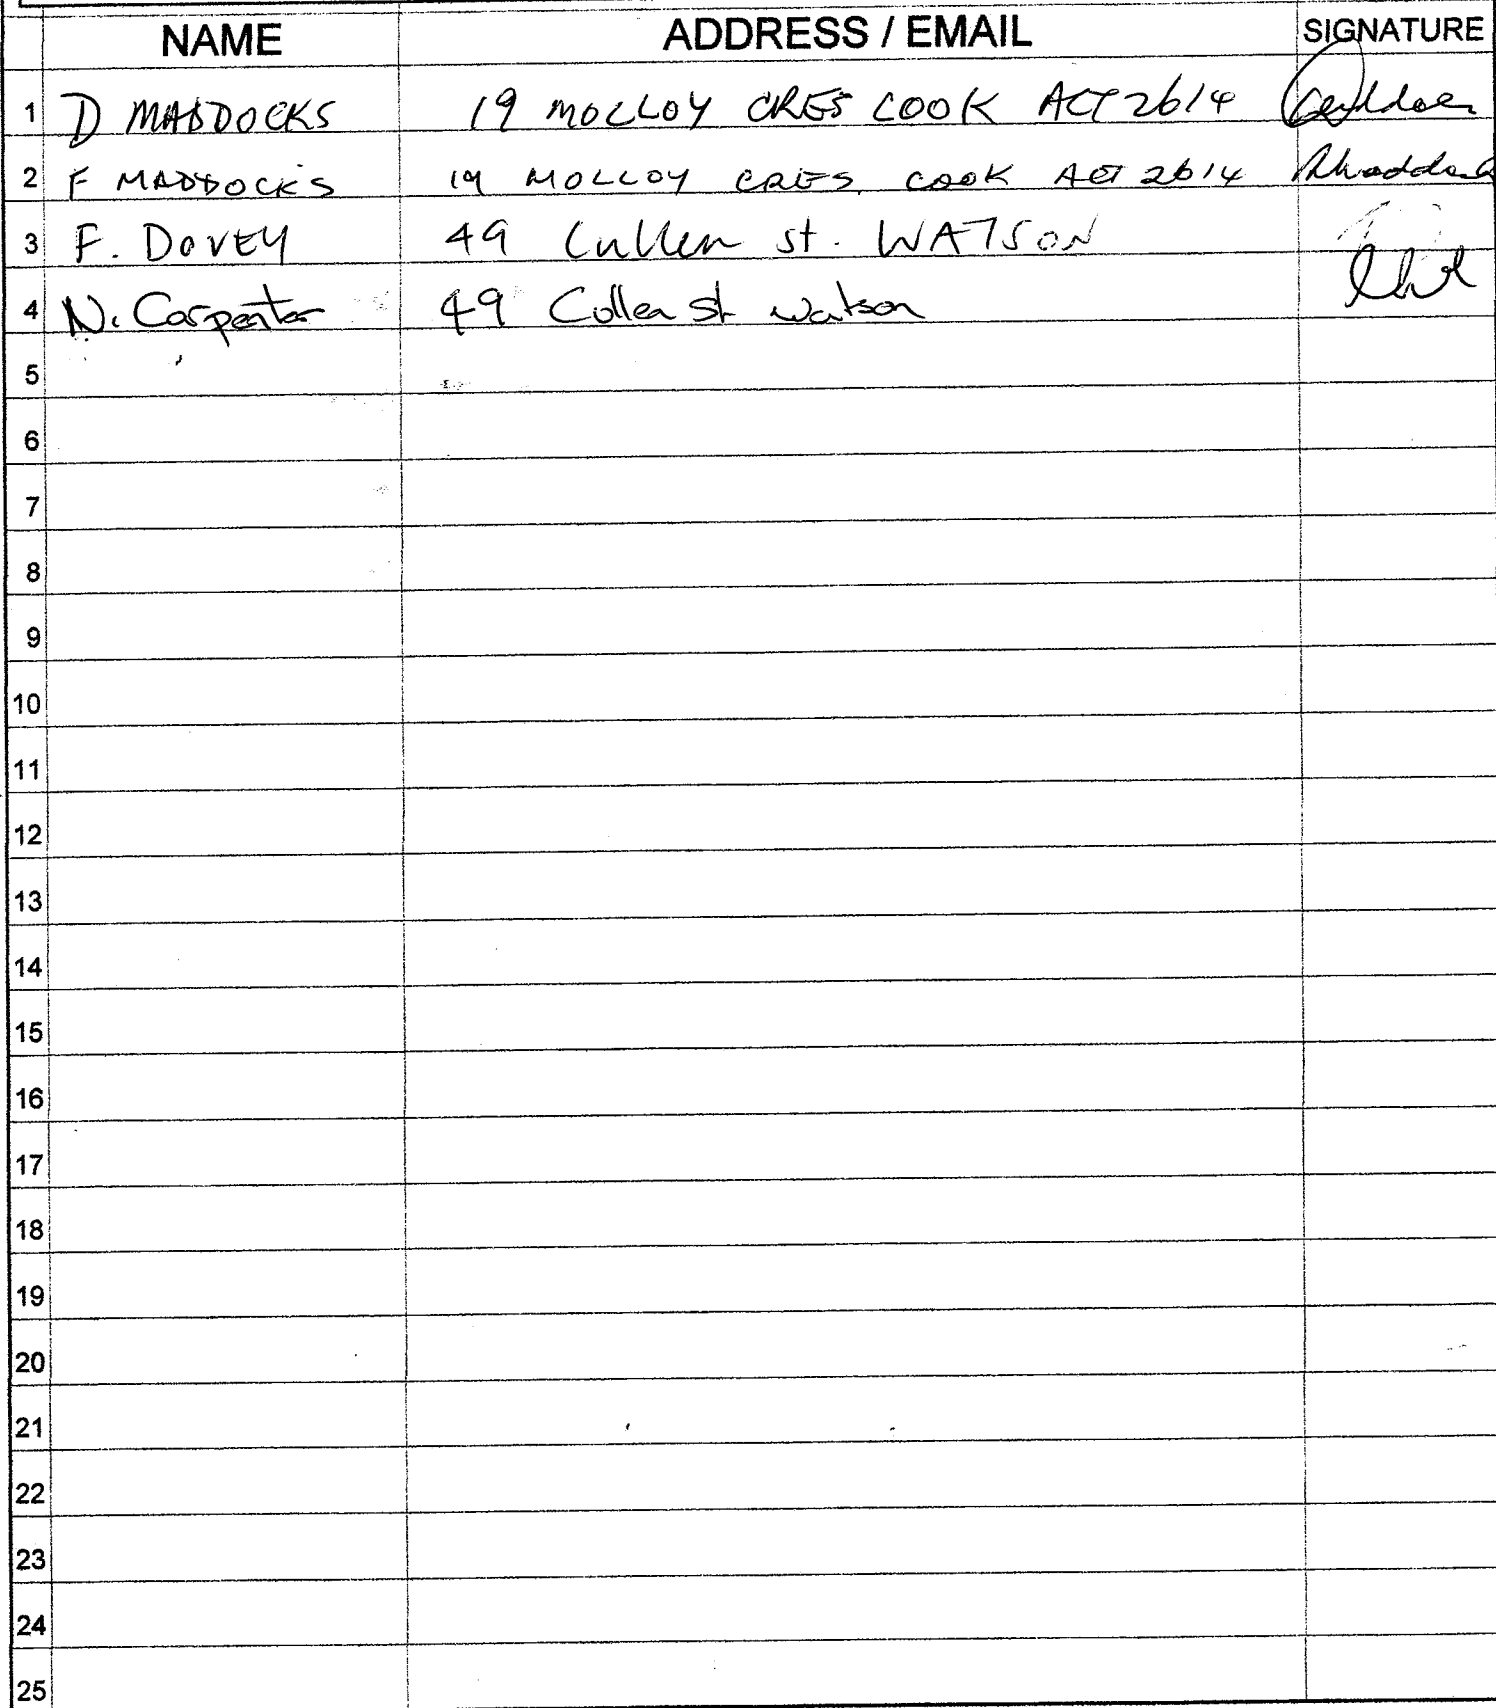 NAME ADDRESS / EMAIL SIGNATURE
1 D MADDOCKS 19 MOLLOY CRES COOK ACT 2614
2 F MADDOCKS 19 MOLLOY CRES. COOK ACT 2614
3 F. DOVEY 49 Cullen st. WATSON
4 N. Carpenter 49 Cullen st watson
5
6
7
8
9
10
11
12
13
14
15
16
17
18
19
20
21
22
23
24
25